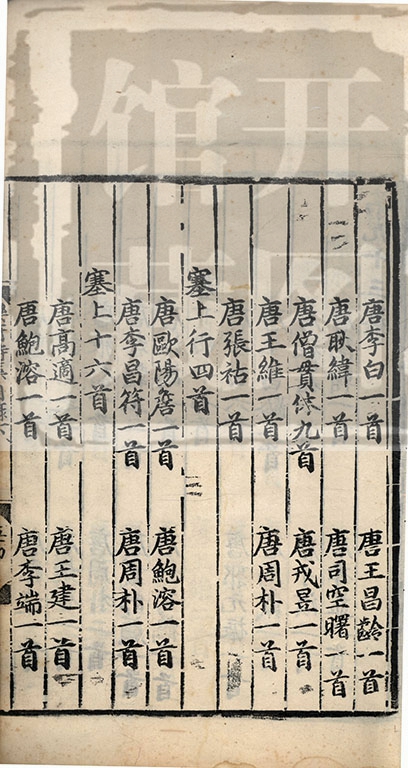 唐李白一首 唐王昌齡一首
唐耿緯一首 唐司空曙一首
唐僧貫休九首 唐戎昱一首
唐王維一首 唐周朴一首
唐張祜一首
塞上行四首
唐歐陽詹一首 唐鮑溶一首
唐李昌符一首 唐周朴一首
塞上十六首
唐高適一首 唐王建一首
唐鮑溶一首 唐李端一首
开
馆